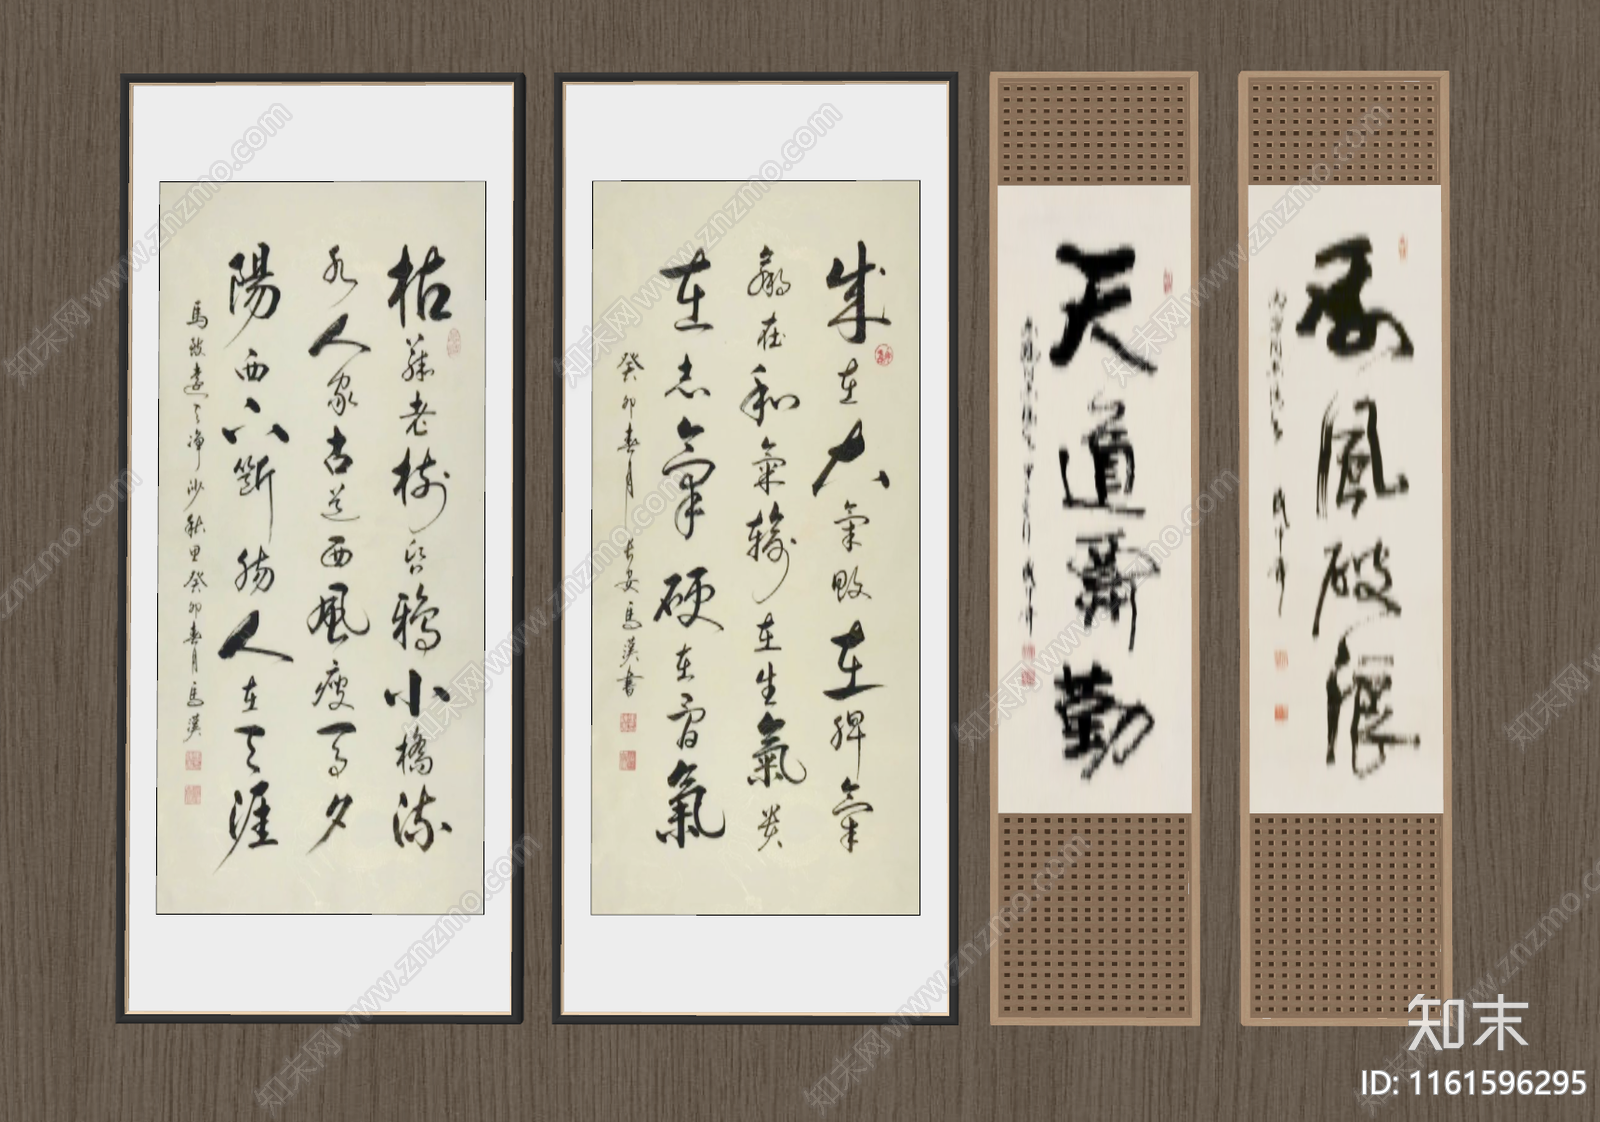 枯藤老樹昏鴉小橋流
水人家古道西風瘦馬夕
陽西下斷腸人在天涯
馬致遠天淨沙秋思癸卯春月馬漢
成在大氣敗在脾氣
贏在和氣輸在生氣貴
在志氣硬在骨氣
癸卯春月長安馬漢書
天道酬勤
乘風破浪
知末网www.znzmo.com
知末
ID: 1161596295